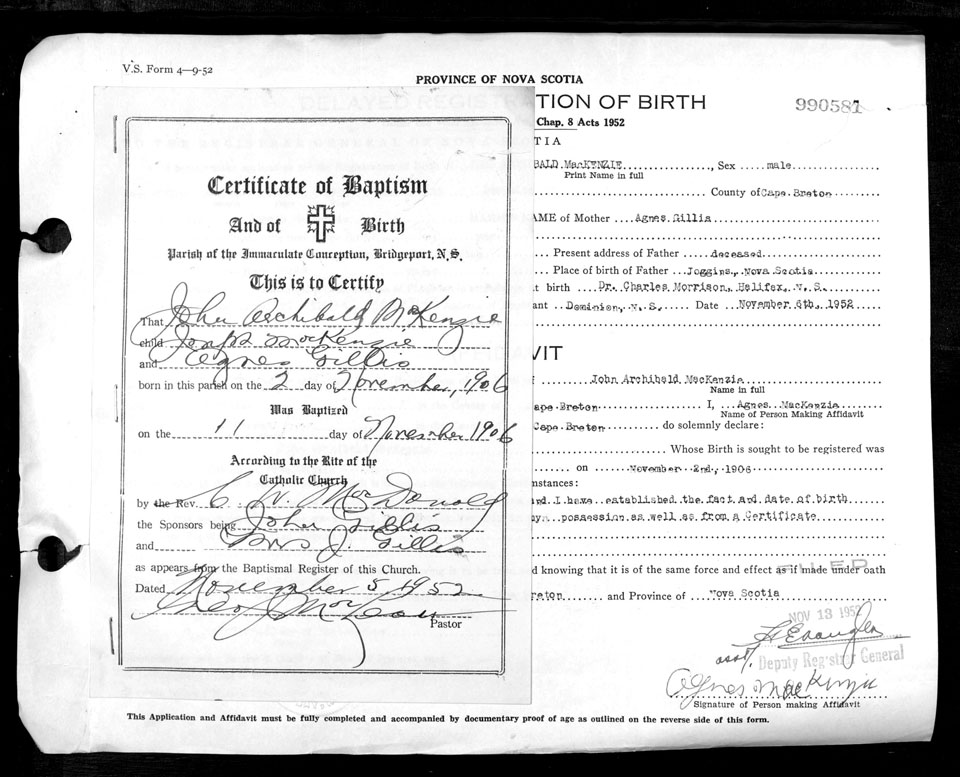 V.S. Form 4—9-52
PROVINCE OF NOVA SCOTIA
TION OF BIRTH
990581
Chap. 8 Acts 1952
TIA
Certificate of Baptism
And of Birth
Parish of the Immaculate Conception, Bridgeport, N.S.
This is to Certify
That John Archibald MacKenzie
child Joseph MacKenzie
and Agnes Gillis
born in this parish on the 2 day of November, 1906
Was Baptized
on the 11 day of November 1906
According to the Rite of the
Catholic Church
by the Rev. C. W. MacDonald
the Sponsors being John Gillis
and Mrs J. Gillis
as appears from the Baptismal Register of this Church.
Dated November 5, 1952
Pastor
BALD MacKENZIE, Sex male
Print Name in full
County of Cape Breton
AME of Mother Agnes Gillis
Present address of Father deceased
Place of birth of Father Joggins, Nova Scotia
t birth Dr. Charles Morrison, Halifax, N.S.
ant Dominion, N.S. Date November 6th, 1952
VIT
John Archibald MacKenzie
Name in full
ape Breton I, Agnes MacKenzie
Name of Person Making Affidavit
Cape Breton do solemnly declare:
Whose Birth is sought to be registered was
on November 2nd, 1906
mstances:
and I have established the fact and date of birth
my possession as well as from a Certificate
d knowing that it is of the same force and effect as if made under oath
FILED
reton and Province of Nova Scotia
NOV 13 1952
asst.
Deputy Registrar General
Agnes MacKenzie
Signature of Person making Affidavit
This Application and Affidavit must be fully completed and accompanied by documentary proof of age as outlined on the reverse side of this form.